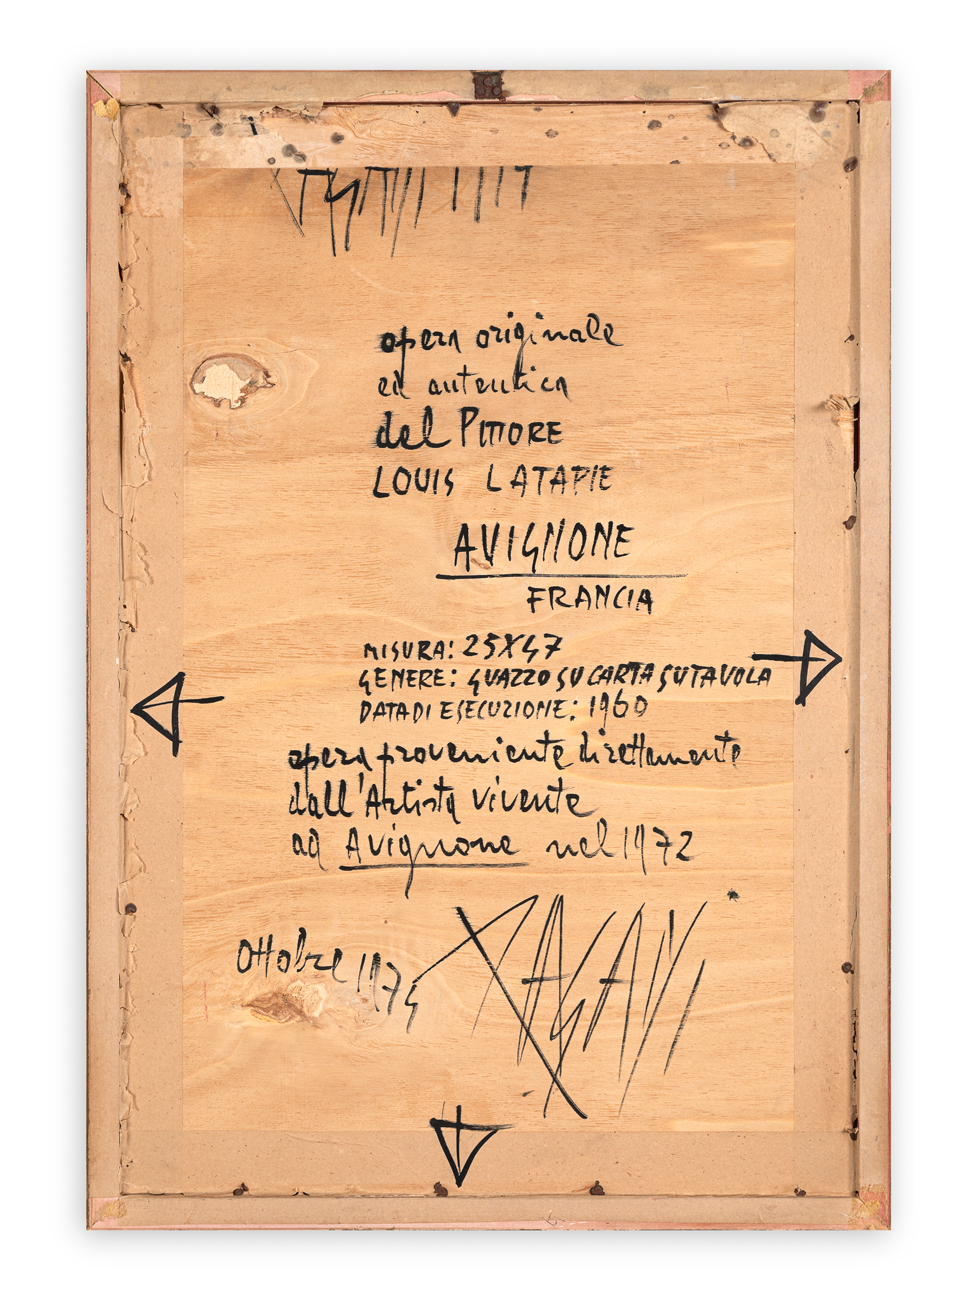 opera originale
ed autentica
del PITTORE
LOUIS LATAPIE
AVIGNONE
FRANCIA
MISURA: 25X47
GENERE: GUAZZO SU CARTA SU TAVOLA
DATA DI ESECUZIONE: 1960
opera proveniente direttamente
dall'Artista vivente
ad Avignone nel 1972
Ottobre 1974
PAGANI